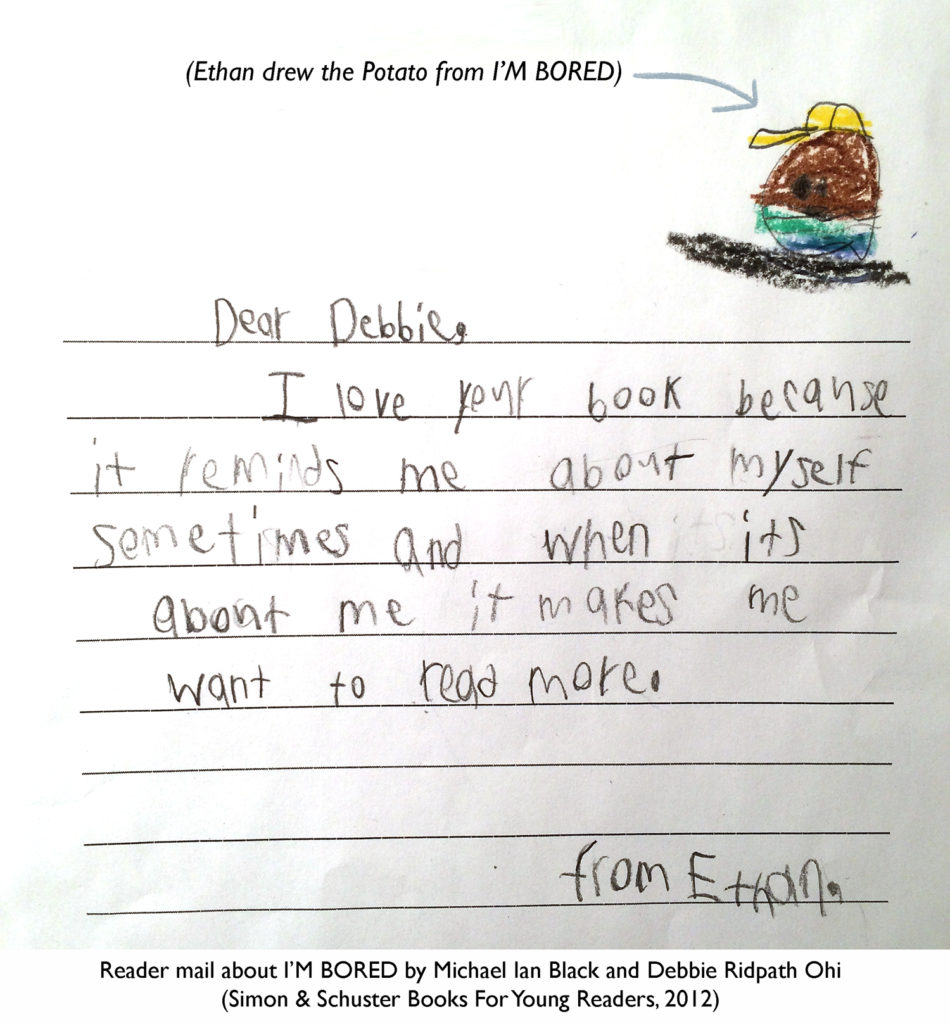 (Ethan drew the Potato from I'M BORED)
Dear Debbie,
I love your book because
it reminds me about myself
sometimes and when its
about me it makes me
want to read more.
from Ethan.
Reader mail about I'M BORED by Michael Ian Black and Debbie Ridpath Ohi
(Simon & Schuster Books For Young Readers, 2012)